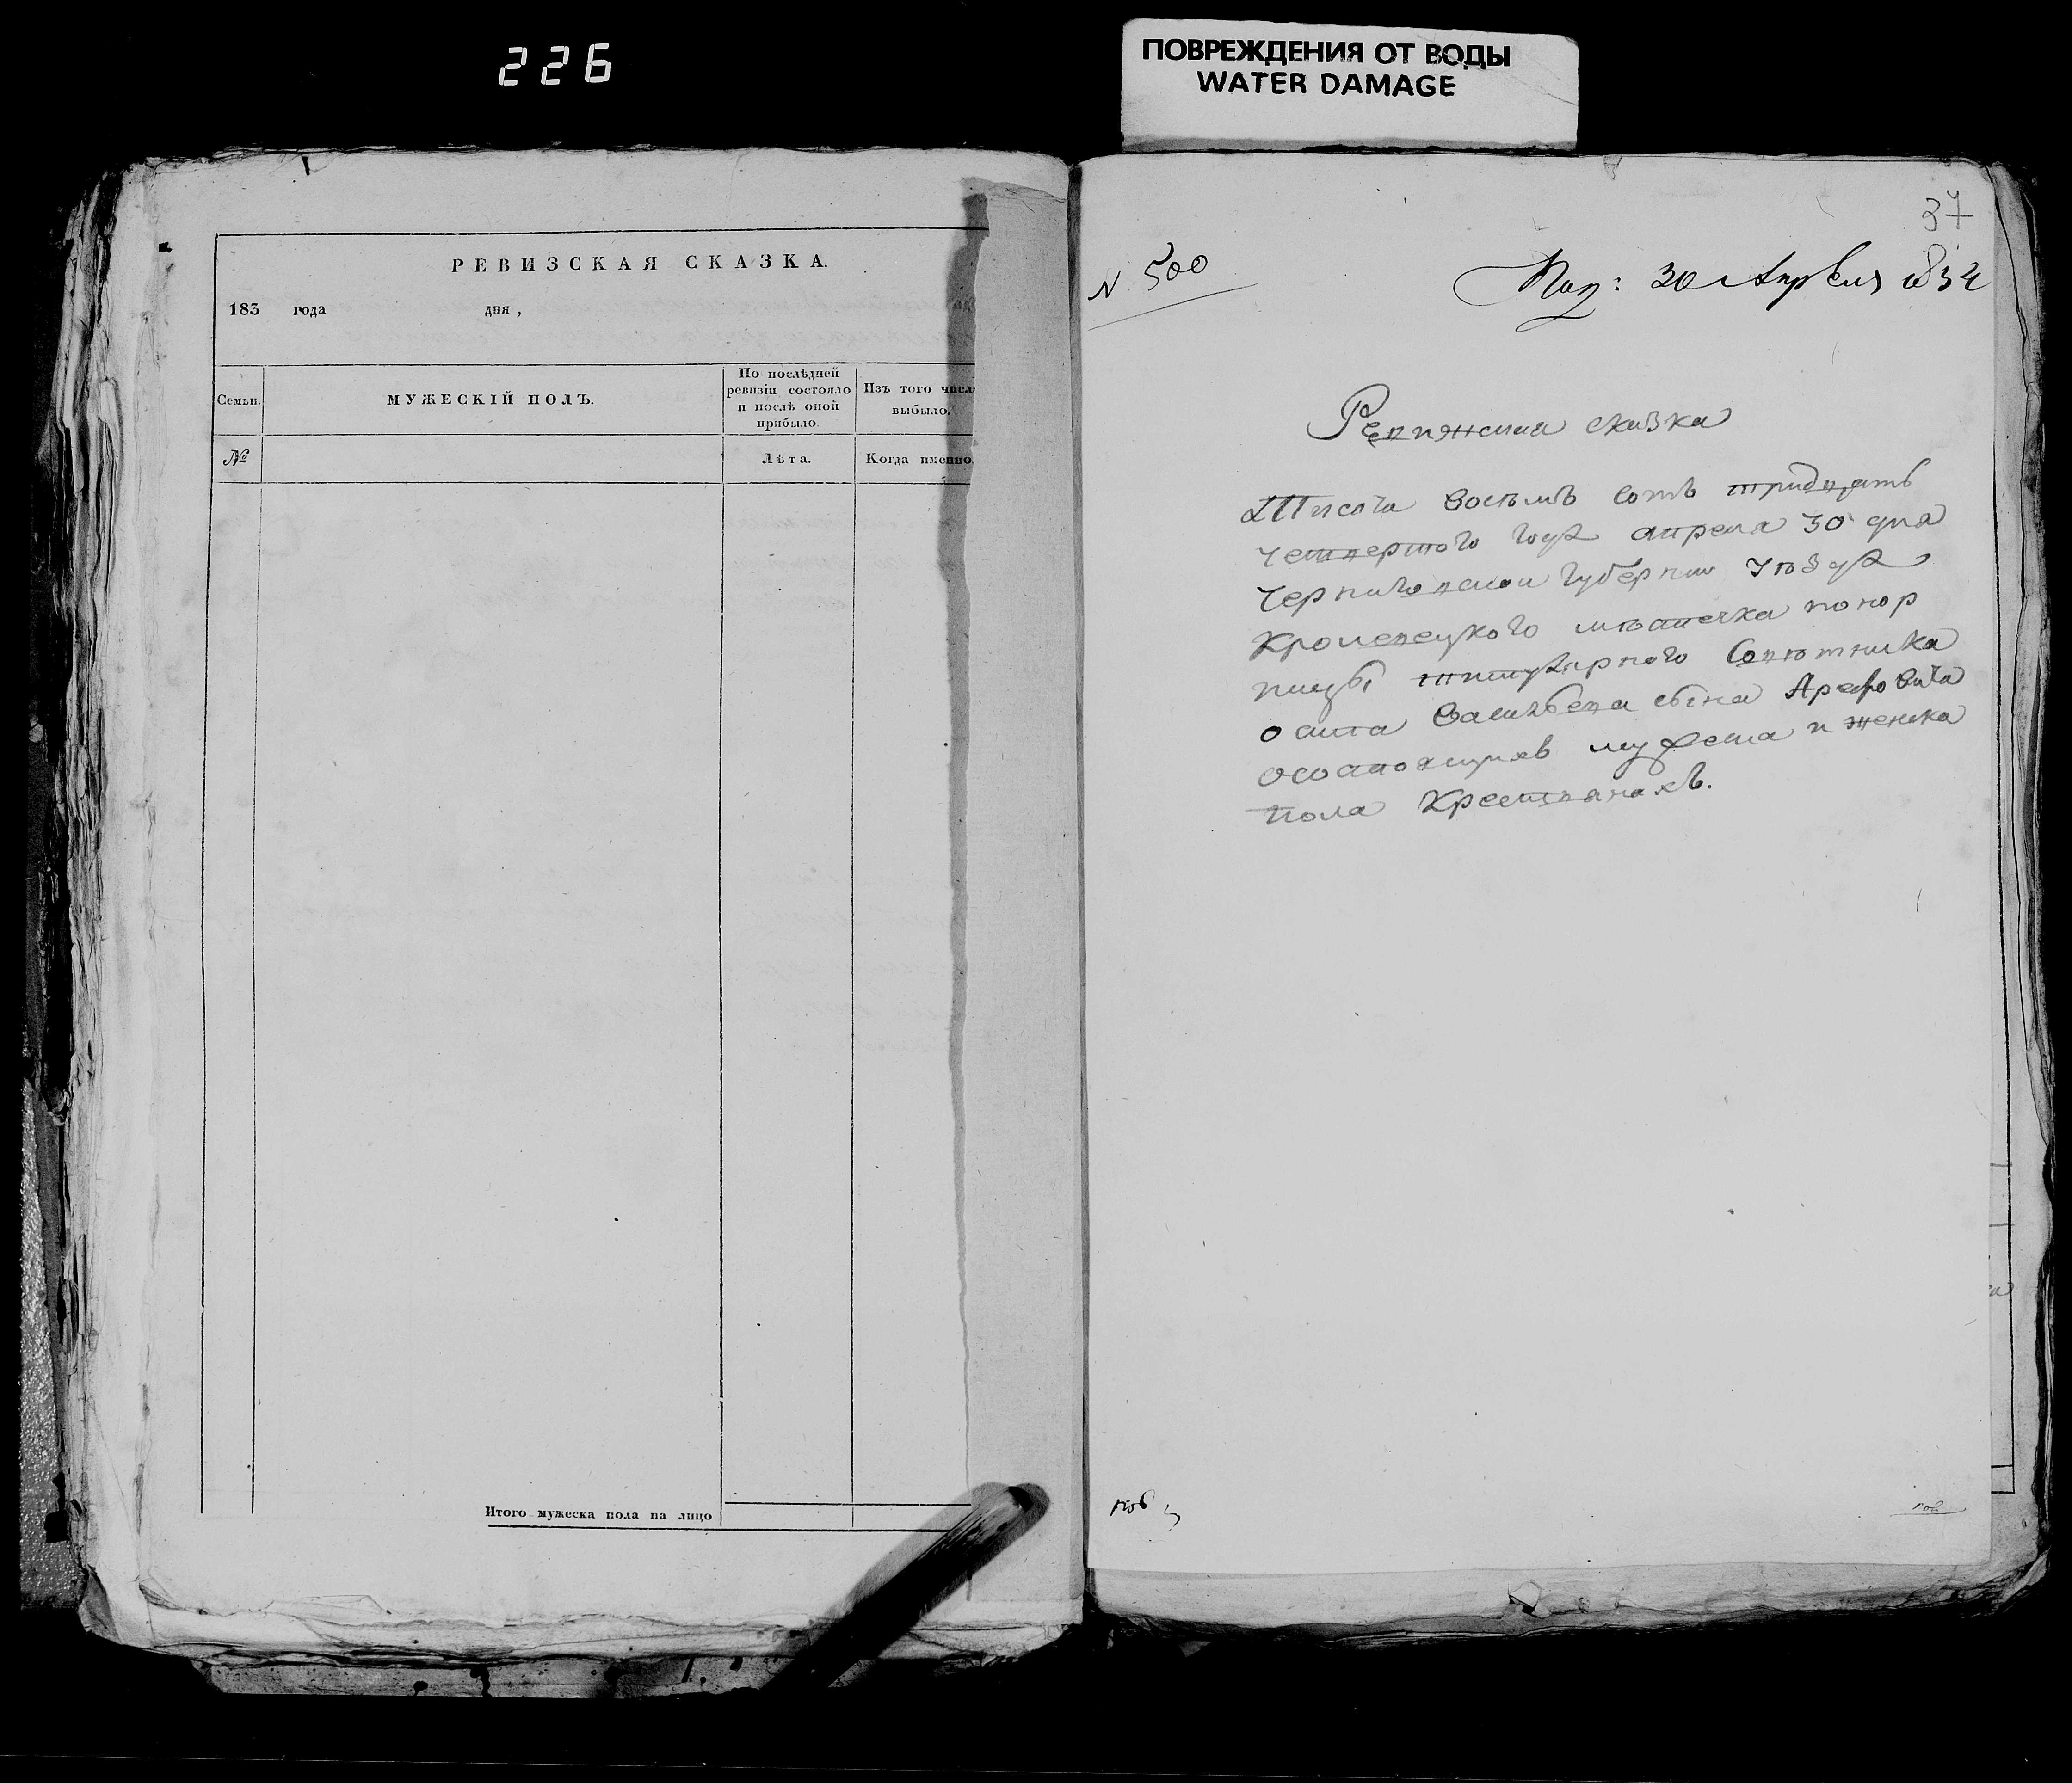 226
ПОВРЕЖДЕНИЯ ОТ ВОДЫ
WATER DAMAGE
РЕВИЗСКАЯ СКАЗКА.
183 года дня,
Семьи.
МУЖЕСКІЙ ПОЛЪ.
По послѣдней ревизіи состояло и послѣ оной прибыло.
Изъ того числ
выбыло.
№
Лѣта.
Когда именно.
Итого мужеска пола на лицо
37
N 500
Пол: 30 Апреля 1834
сказка
Тисяча восемъ сотъ тридцать
четвертого года апреля 30 дня
Черниговской губернии уезда
Кролевецкого местечка понор
ницы титулярного советника
Васильева сына
состоящих мужеска и женска
пола крестьянахъ.